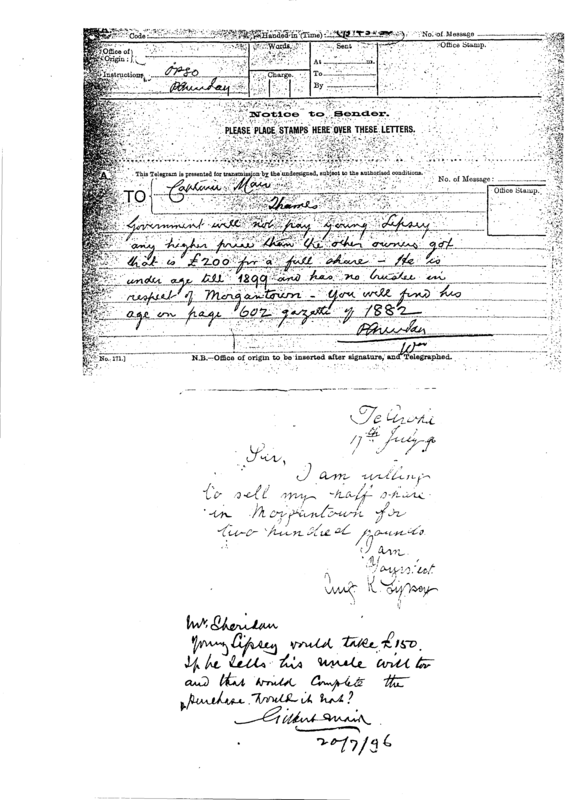 Code
Handed in (Time)
No. of Message
Office of Origin:
Words.
Sent
Office Stamp.
At m.
Instructions
Charge.
To
By
Notice to Sender.
PLEASE PLACE STAMPS HERE OVER THESE LETTERS.
A.
This Telegram is presented for transmission by the undersigned, subject to the authorised conditions.
No. of Message:
TO
Captain Mair
Office Stamp.
Thames
Government will not pay young Lipsey
any higher price than the other owners got
that is £200 for a full share - He is
under age till 1899 and has no trustee in
respect of Morgantown - You will find his
age on page 602 gazette of 1882
P Sheridan
No. 171.]
N.B.—Office of origin to be inserted after signature, and Telegraphed.
Te Aroha
17th July 9
Sir,
I am willing
to sell my half share
in Morgantown for
two hundred pounds
I am
Yours &ct.
Aug K. Lipsey
Mr. Sheridan
Young Lipsey would take £150.
If he sells his uncle will too
and that would complete the
purchase. Would it not?
Gilbert Mair
20/7/96